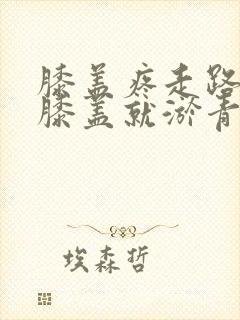 膝盖疼走路
膝盖就淤青
埃森哲